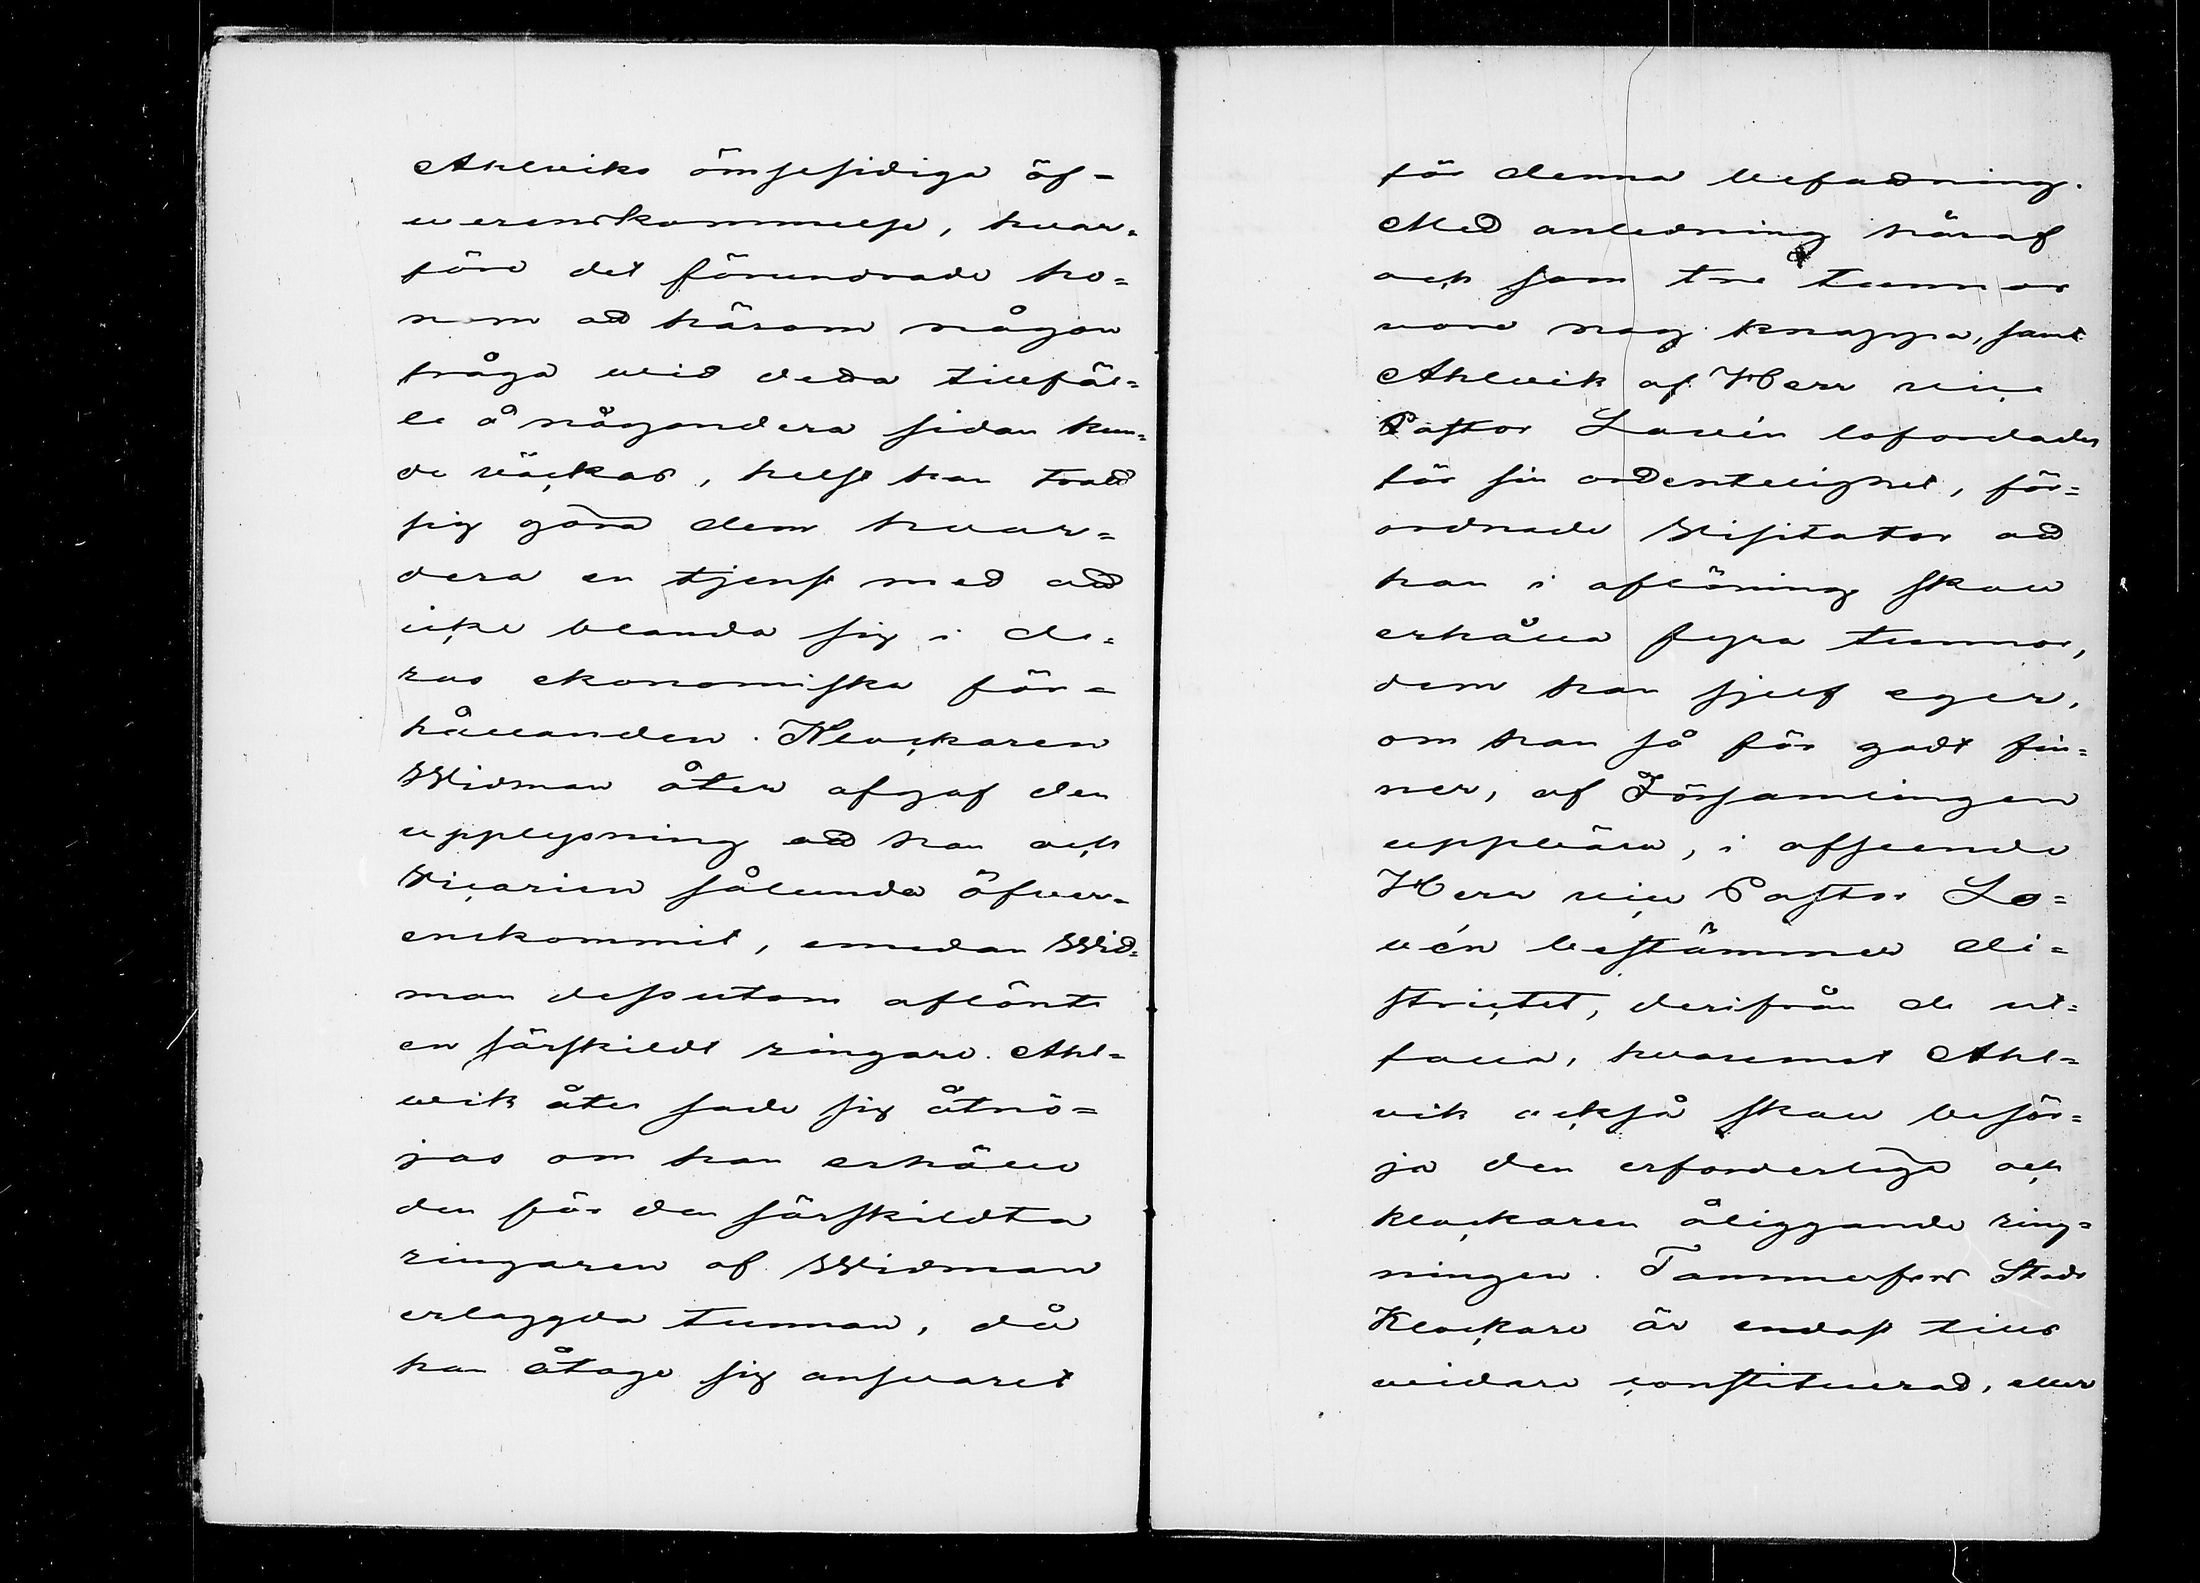 Ahlviks ömsesidiga öf-
werenskommelse, hvar-
före det förundrade ho-
nom att härom någon
fråga wid detta tillfäl-
le å någondera sidan kun-
de väckas, helst han trott
sig göra dem hvar-
dera en tjenst med att
icke blanda sig i de-
ras ekonomiska för-
hållanden. Klockaren
Widman åter afgaf den
upplysning att han och
Vicarien sålunda öfver-
enskommit, emedan Wid-
man dessutom aflönte
en särskildt ringare. Ahl-
wik åter sade sig åtnö-
jas om han erhölle
den för den särskildta
ringaren af Widman
erlaggda tunnan, då
han åtoge sig ansvaret
för denna befattning.
Med anledning häraf
och som tre tunnor
vore nog knappa, samt
Ahlvik af Herr vice
Pastor Lovén lofordades
för sin ordentelighet, för-
ordnade Visitator att
han i aflöning skall
erhålla fyra tunnor,
dem han sjelf eger,
om han så för godt fin-
ner, af Församlingen
uppbära, i afseende
Herr vice Pastor Lo-
vén bestämmer di-
strictet, derifrån de ut-
falla, hvaremot Ahl-
vik också skall besör-
ja den erforderliga och
klockaren åliggande ring-
ningen. Tammerfors Stads
Klockare är endast tills
vidare constituerad, eller